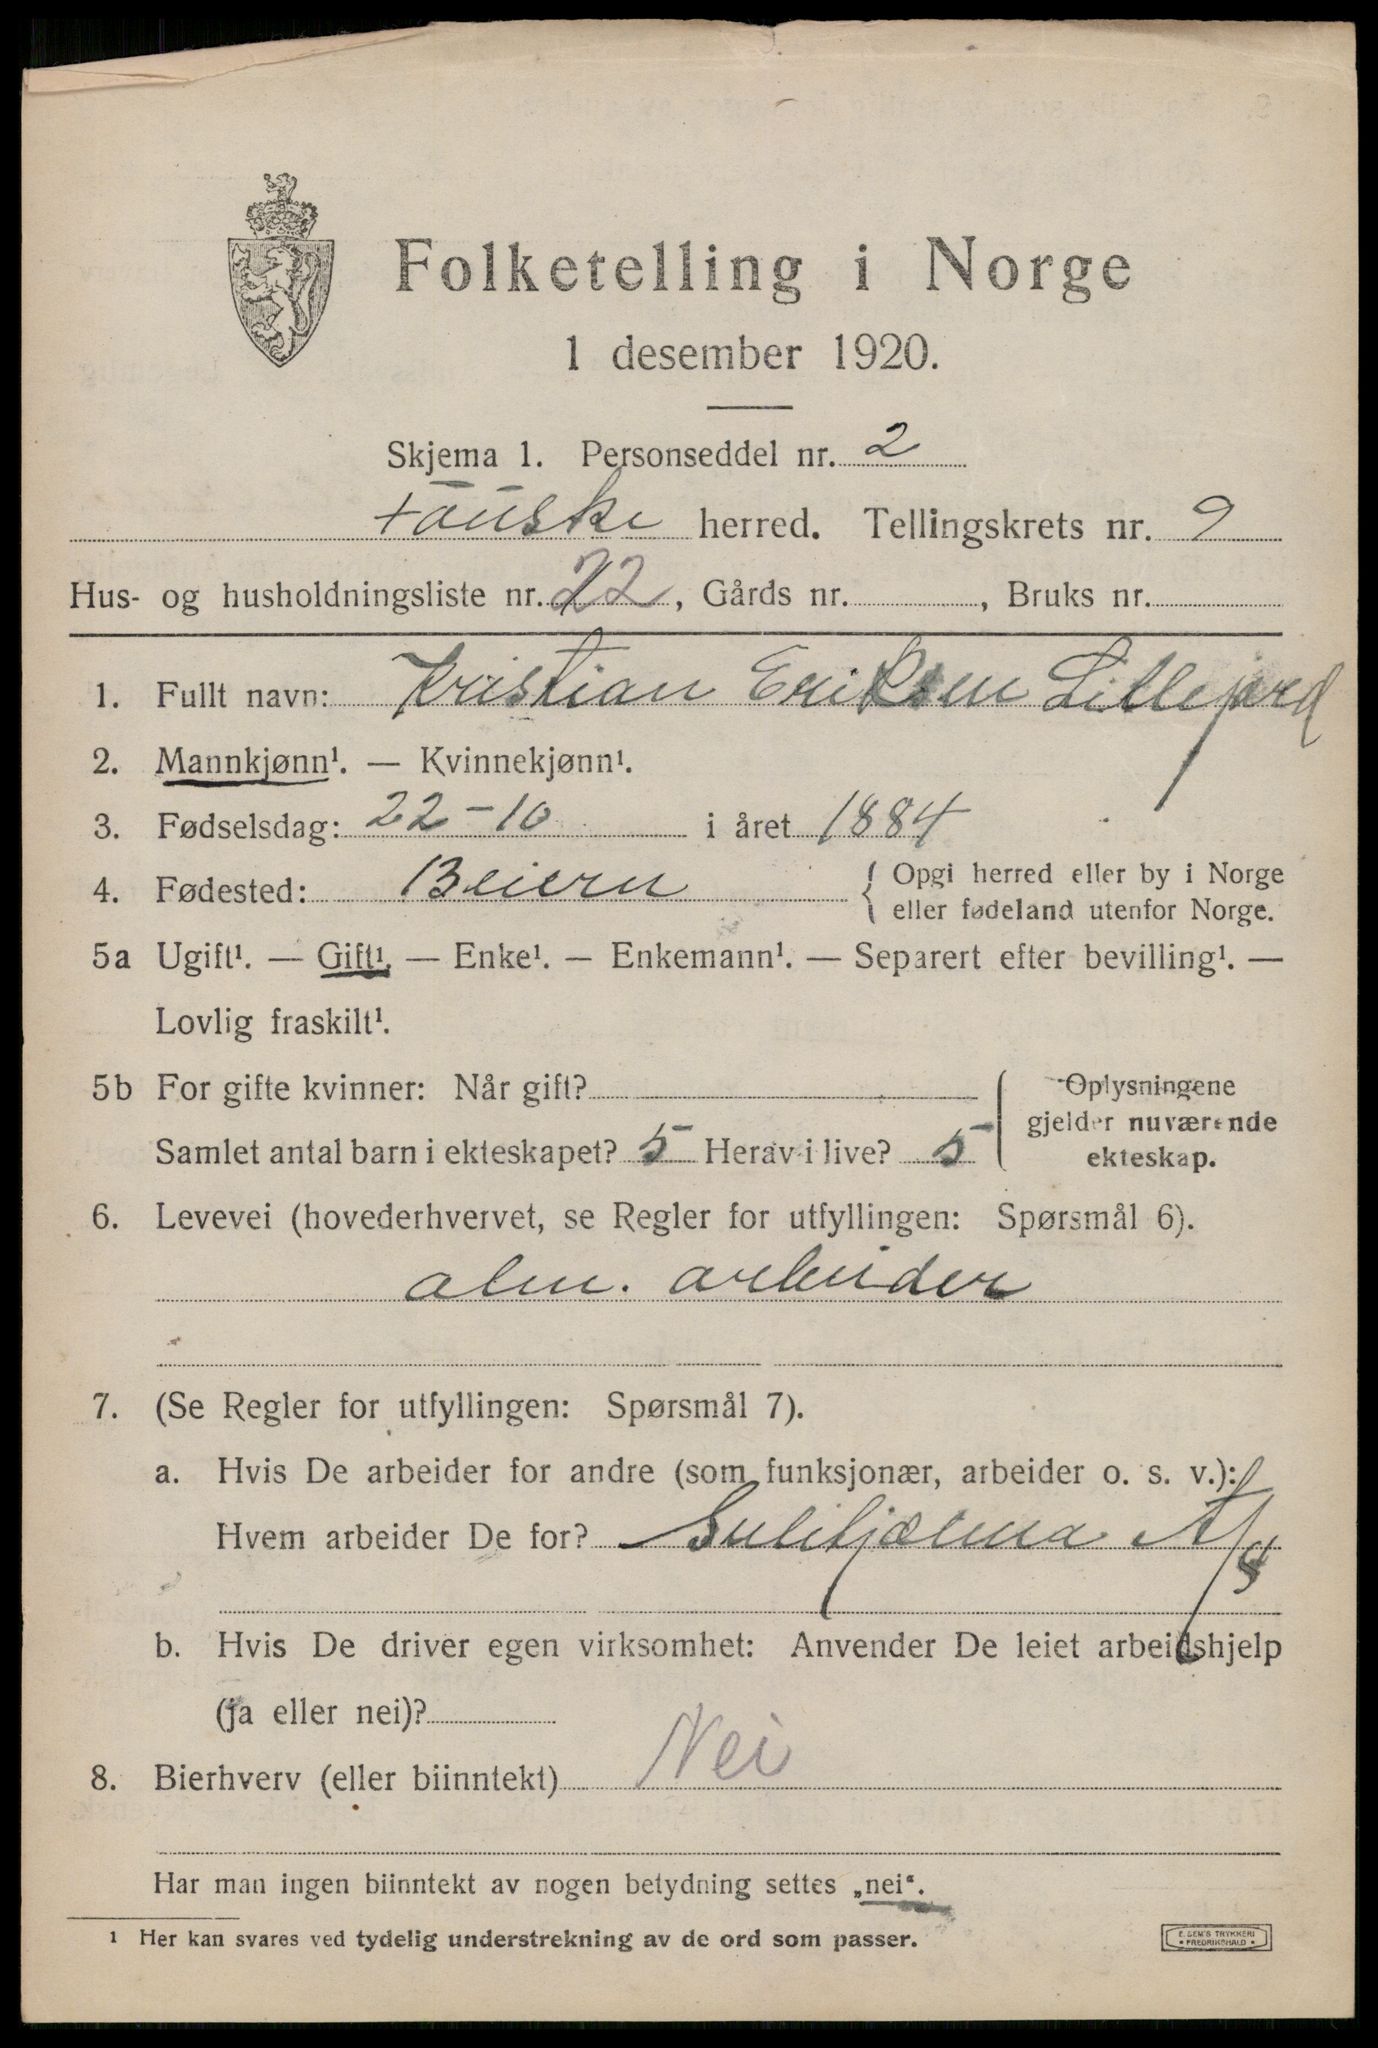 Folketelling i Norge
1 desember 1920.
Skjema 1. Personseddel nr. 2
Fauske herred. Tellingskrets nr. 9
Hus- og husholdningsliste nr. 22, Gårds nr. , Bruks nr.
1. Fullt navn: Kristian Eriksen Lillejord
2. Mannkjønn¹. — Kvinnekjønn¹.
3. Fødselsdag: 22-10 i året 1884
4. Fødested: Beiern { Opgi herred eller by i Norge
eller fødeland utenfor Norge.
5a Ugift¹. — Gift¹. — Enke¹. — Enkemann¹. — Separert efter bevilling¹. —
Lovlig fraskilt¹.
5b For gifte kvinner: Når gift?
Samlet antal barn i ekteskapet? 5 Herav i live? 5
Oplysningene
gjelder nuværende
ekteskap.
6. Levevei (hovederhvervet, se Regler for utfyllingen: Spørsmål 6).
alm. arbeider
7. (Se Regler for utfyllingen: Spørsmål 7).
a. Hvis De arbeider for andre (som funksjonær, arbeider o. s. v.):
Hvem arbeider De for? Sulitjælma A/S
b. Hvis De driver egen virksomhet: Anvender De leiet arbeidshjelp
(ja eller nei)?
8. Bierhverv (eller biinntekt) Nei
Har man ingen biinntekt av nogen betydning settes „nei“.
¹ Her kan svares ved tydelig understrekning av de ord som passer.
E. SEM'S TRYKKERI
• FREDRIKSHALD •